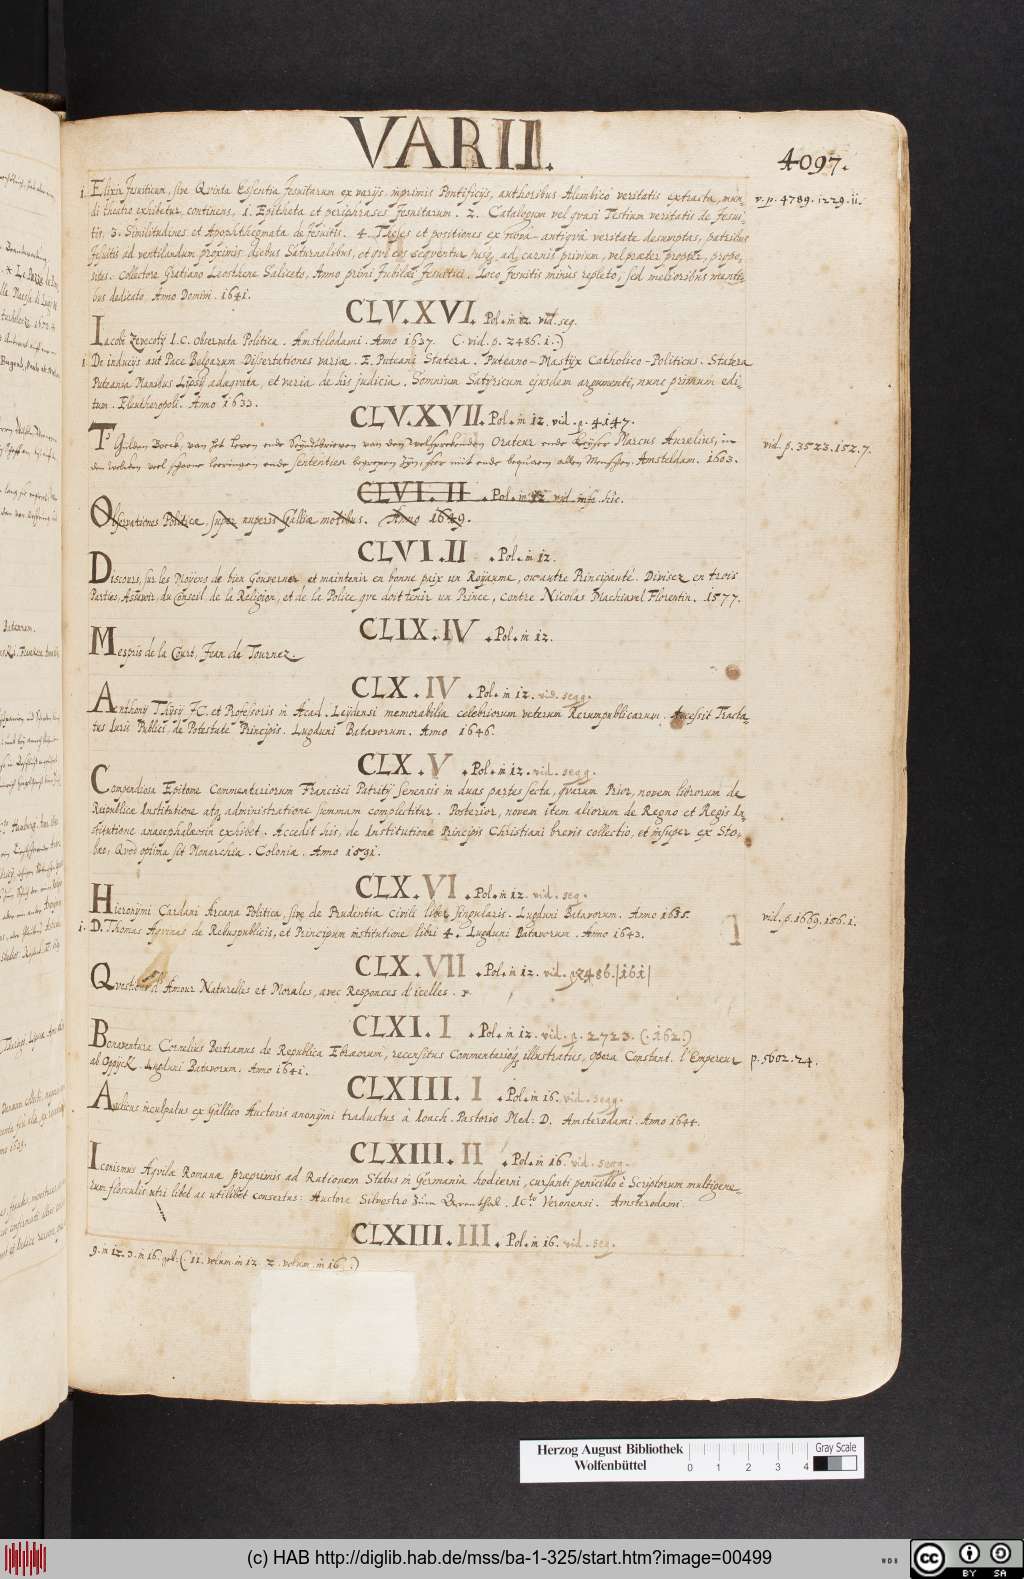 VARII.
4097.
1. Elixir Jesuiticum, sive Qvinta Essentia Jesuitarum ex varijs, inprimis Pontificijs, authoribus Alembico veritatis extracta, mun- v. p. 4789. 1229. 11.
di theatro exhibetur, continens, 1. Epitheta et periphrases Jesuitarum. 2. Catalogum vel qvasi Testium veritatis de Jesui-
tis. 3. Similitudines et Apophthegmata de Jesuitis. 4. Theses et positiones ex nova-antiqvâ veritate desumptas, patribus
Jesuitis ad ventilandum proximis diebus Saturnalibus, et qvi eos seqventur usq ad carnis privium, vel praeter propter, propo-
sitas. Collectore Gratiano Leosthene Salicato. Anno primi Jubilaei Jesuitici. Loco Jesuitis minus repleto, sed melioribus menti-
bus dedicato. Anno Domini. 1641.
CLV.XVI. Pol. in 12. vid. seg.
Iacobi Zevecotij I.C. Observata Politica. Amstelodami. Anno 1637. (. vid. p. 2486. 1.)
1. De inducijs aut Pace Belgarum Dissertationes variae. E. Puteani Statera. Puteano-Mastyx Catholico-Politicus. Statera
Puteania Manibus Lipsij adaqvata, et varia de his judicia. Somnium Satyricum ejusdem argumenti, nunc primum edi-
tum. Eleutheropoli. Anno 1633.
CLV.XVII. Pol. in 12. vid. p. 4147.
T' Gulden Boeck, van het leven ende Seyndtbrieven van den welsprekenden Orateur ende Keyser Marcus Aurelius, in vid. p. 3523. 152. 7.
den welcken veel schoone leeringen ende sententien begrepen zijn, seer nut ende bequaem allen Menschen. Amsteldam. 1603.
CLVI.II. Pol. in 12. vid. inf. hic.
Observationes Politicae, super nuperis Galliae motibus. Anno 1649.
CLVI.II. Pol. in 12.
Discours, sur les Moyens de bien Gouverner, et maintenir en bonne paix un Royaume, ou autre Principauté. Divisez en trois
Parties, Asscavoir, du Conseil, de la Religion, et de la Police qve doit tenir un Prince, Contre Nicolas Machiavel Florentin. 1577.
CLIX.IV. Pol. in 12.
Mespris de la Court, Jean de Tournez.
CLX.IV. Pol. in 12. vid. segg.
Anthonij Thysij JC. et Professoris in Acad. Leydensi memorabilia celebriorum veterum Rerumpublicarum. Accessit Tracta-
tus Iuris Publici, de Potestate Principis. Lugduni Batavorum. Anno 1646.
CLX.V. Pol. in 12. vid. segg.
Compendiosa Epitome Commentariorum Francisci Patritij Senensis in duas partes secta, qvarum Prior, novem librorum de
Reipublicae Institutione atq administratione summam complectitur. Posterior, novem item aliorum de Regno et Regis In-
stitutione anacephalaeosin exhibet. Accedit his, de Institutione Principis Christiani brevis collectio, et insuper ex Sto-
baeo: Qvod optima sit Monarchia. Coloniae. Anno 1591.
CLX.VI. Pol. in 12. vid. seg.
Hieronymi Cardani Arcana Politica, sive de Prudentia Civili liber singularis. Lugduni Batavorum. Anno 1635. vid. p. 1669. 156. 1.
1. D. Thomas Aqvinas de Rebuspublicis, et Principum institutione libri 4. Lugduni Batavorum. Anno 1643.
CLX.VII. Pol. in 12. vid. p. 2486. |161|
Qvestions d' Amour Naturelles et Morales, avec Responces d'icelles.
CLXI.I. Pol. in 12. vid. p. 2723. (.162.)
Bonaventura Cornelius Bertramus de Republica Ebraeorum, recensitus Commentarioq illustratus, opera Constant. l'Empereur p. 5602. 24.
ab Oppyck. Lugduni Batavorum. Anno 1641.
CLXIII.I. Pol. in 16. vid. segg.
Aulicus inculpatus ex Gallico Auctoris anonymi traductus à Ioach. Pastorio Med: D. Amsterodami. Anno 1644.
CLXIII.II. Pol. in 16. vid. segg.
Iconismus Aqvilae Romanae, praeprimis ad Rationem Status in Germania hodierni, cursanti penicillo è Scriptorum multigene-
rum flosculis utri libet ac utilibet consertus: Auctore Silvestro IC.to Veronensi. Amsterodami.
CLXIII.III. Pol. in 16. vid. seg.
9. in 12. 3. in 16. (. 11. volum. in 12. 2. volum. in 16.)
Herzog August Bibliothek
Wolfenbüttel
0 1 2 3 4
Gray Scale
(c) HAB http://diglib.hab.de/mss/ba-1-325/start.htm?image=00499
WDB
cc BY SA